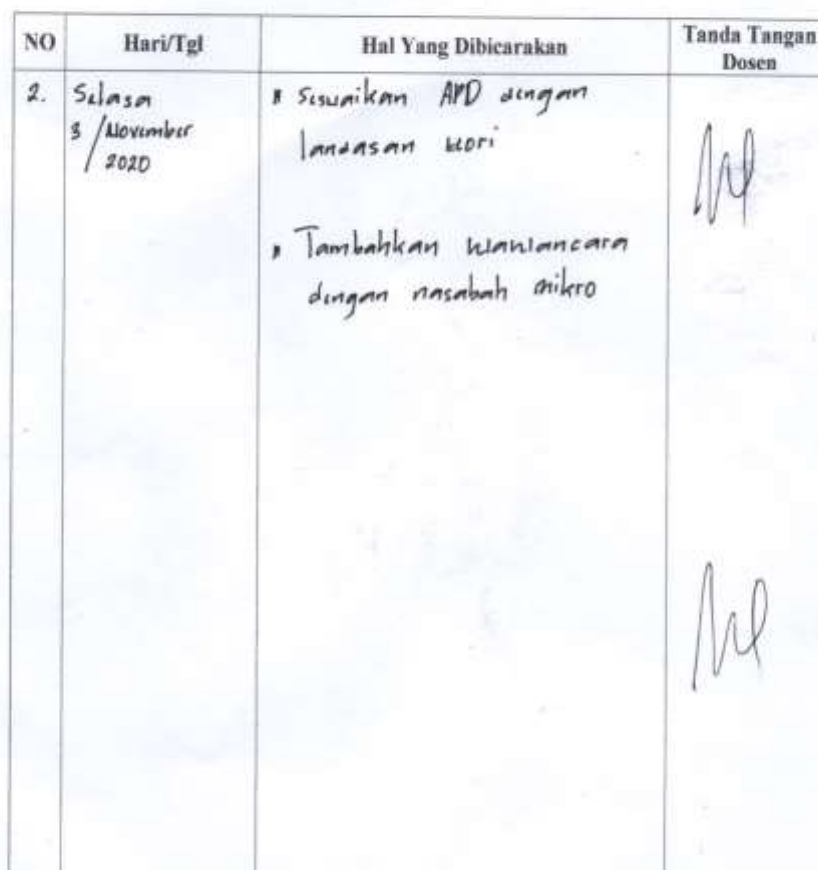 NO Hari/Tgl Hal Yang Dibicarakan Tanda Tangan Dosen
2. Selasa
3 / November
2020
Sesuaikan APD dengan
landasan teori
Tambahkan wawancara
dengan nasabah mikro